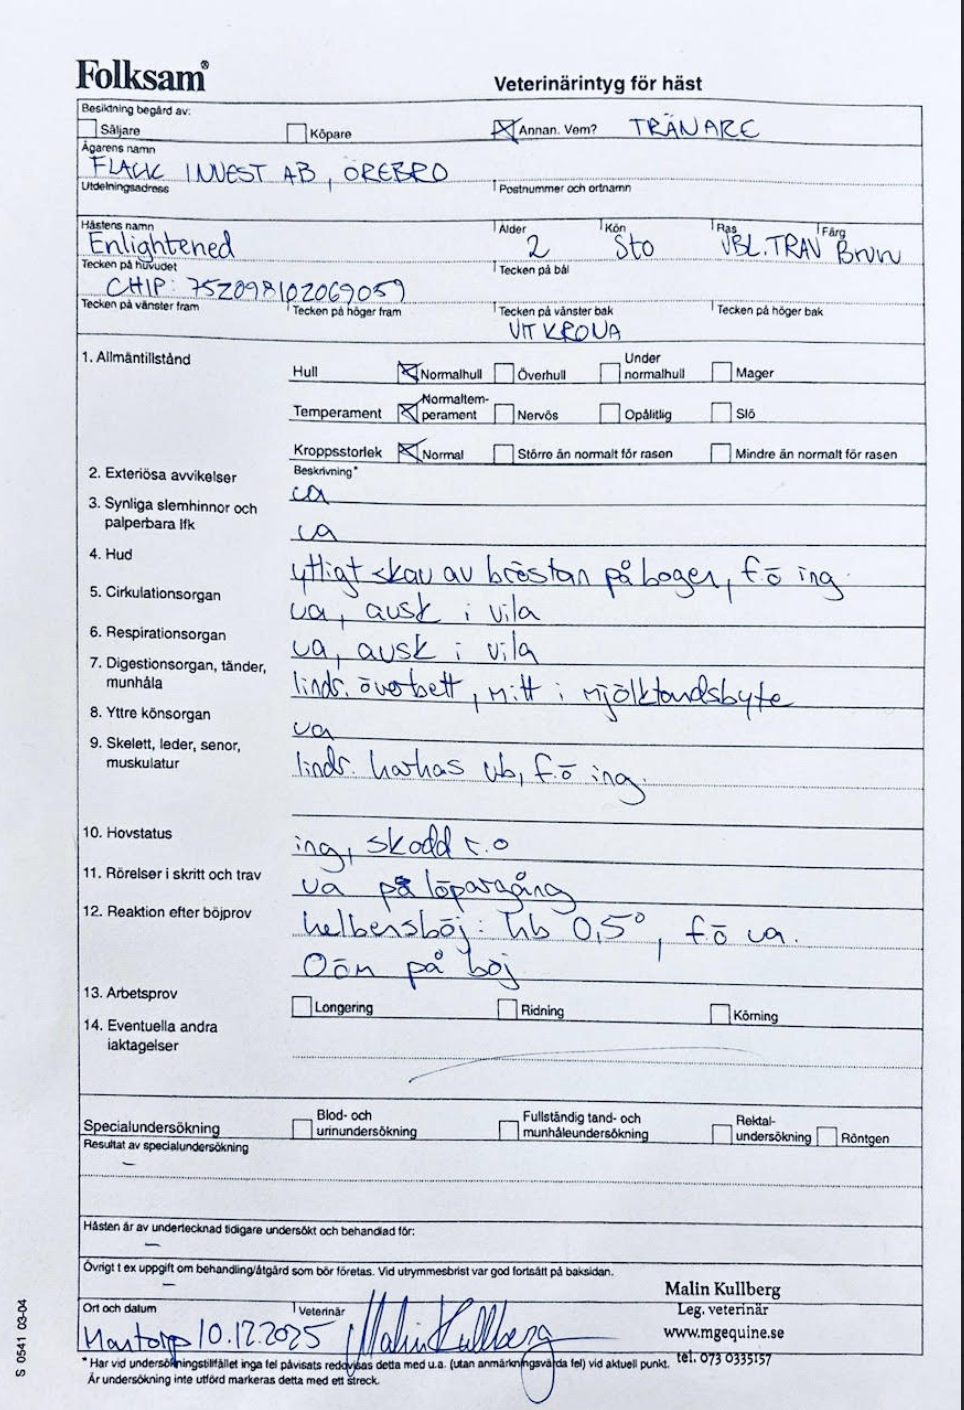 Folksam®
Veterinärintyg för häst
Besiktning begärd av:
Säljare Köpare Annan. Vem? TRÄNARE
Ägarens namn
FLACK INVEST AB, ÖREBRO
Utdelningsadress Postnummer och ortnamn
Hästens namn Ålder Kön Ras Färg
Enlightened 2 Sto VBL.TRAV Brun
Tecken på huvudet Tecken på bål
CHIP: 752098102069059
Tecken på vänster fram Tecken på höger fram Tecken på vänster bak Tecken på höger bak
VIT KRONA
1. Allmäntillstånd
Hull Normalhull Överhull Under normalhull Mager
Temperament Normaltem-perament Nervös Opålitlig Slö
Kroppsstorlek Normal Större än normalt för rasen Mindre än normalt för rasen
Beskrivning*
2. Exteriösa avvikelser ua
3. Synliga slemhinnor och
palperbara lfk ua
4. Hud ytligt skav av bröstan på bogen, f.ö ing.
5. Cirkulationsorgan ua, ausk i vila
6. Respirationsorgan ua, ausk i vila
7. Digestionsorgan, tänder,
munhåla lindr. överbett, mitt i mjölktandsbyte
8. Yttre könsorgan ua
9. Skelett, leder, senor,
muskulatur lindr. harhas vb, f.ö ing.
10. Hovstatus ing, skodd r.o
11. Rörelser i skritt och trav ua på löpargång
12. Reaktion efter böjprov helbensböj: hb 0,5°, f.ö ua.
Oöm på böj
13. Arbetsprov Longering Ridning Körning
14. Eventuella andra
iaktagelser
Specialundersökning Blod- och urinundersökning Fullständig tand- och munhåleundersökning Rektal-undersökning Röntgen
Resultat av specialundersökning
–
Hästen är av undertecknad tidigare undersökt och behandlad för:
–
Övrigt t ex uppgift om behandling/åtgärd som bör företas. Vid utrymmesbrist var god fortsätt på baksidan.
–
Malin Kullberg
Leg. veterinär
www.mgequine.se
tel. 073 0335157
Ort och datum Veterinär
Mantorp 10.12.2025 Malin Kullberg
* Har vid undersökningstillfället inga fel påvisats redovisas detta med u.a. (utan anmärkningsvärda fel) vid aktuell punkt.
Är undersökning inte utförd markeras detta med ett streck.
S 0541 03-04